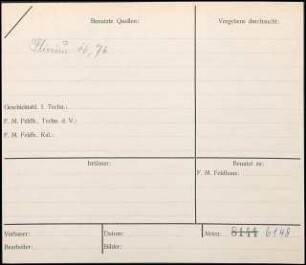 Benutzte Quellen:
Vergebens durchsucht:
Plinius 16, 76
Geschichtsbl. f. Techn.:
F. M. Feldh., Techn. d. V.:
F. M. Feldh., Kal.:
Irrtümer:
Benutzt zu:
F. M. Feldhaus:
Verfasser:
Datum:
8144 6148
Bearbeiter:
Bilder: